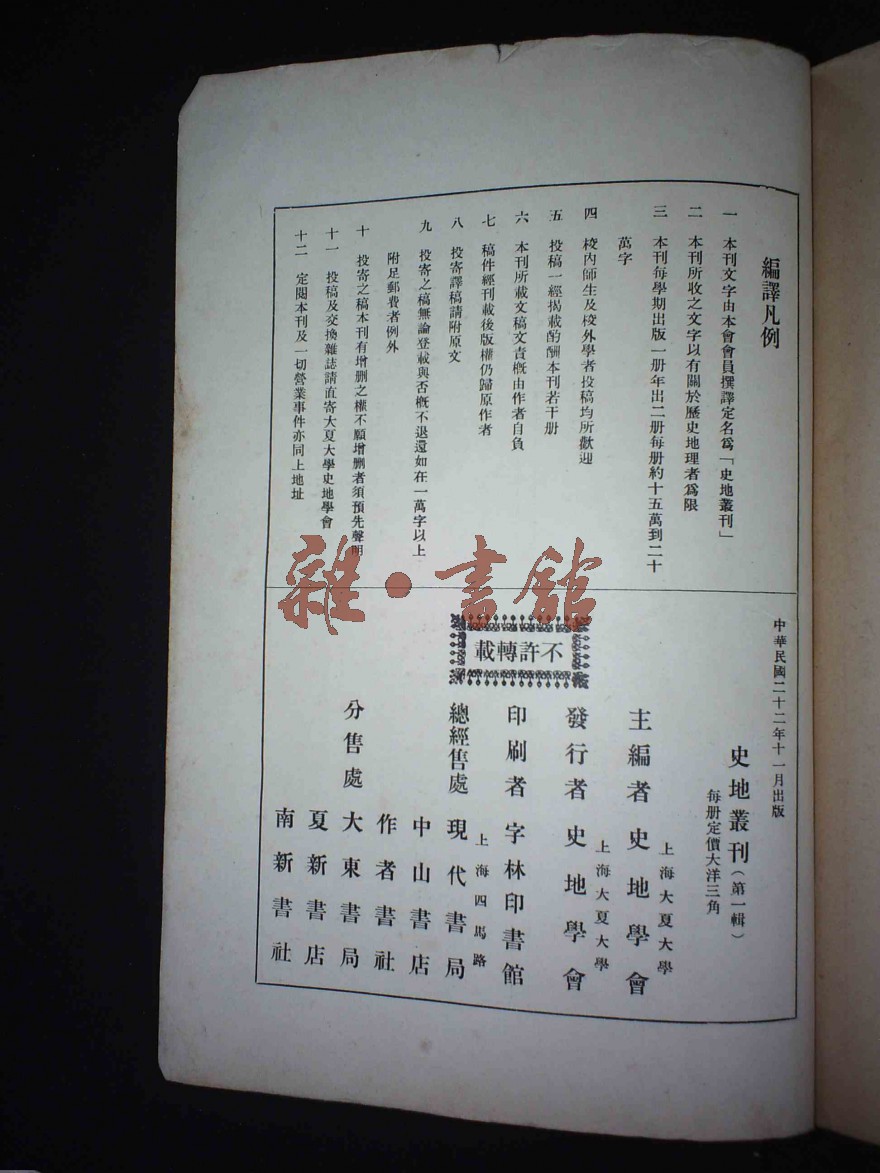 編譯凡例
一 本刊文字由本會會員撰譯定名爲「史地叢刊」
二 本刊所收之文字以有關於歷史地理者爲限
三 本刊每學期出版一册年出二册每册約十五萬到二十
萬字
四 校內師生及校外學者投稿均所歡迎
五 投稿一經揭載酌酬本刊若干册
六 本刊所載文稿文責概由作者自負
七 稿件經刊載後版權仍歸原作者
八 投寄譯稿請附原文
九 投寄之稿無論登載與否概不退還如在一萬字以上
附足郵費者例外
十 投寄之稿本刊有增删之權不願增删者須預先聲明
十一 投稿及交換雜誌請直寄大夏大學史地學會
十二 定閱本刊及一切營業事件亦同上地址
雜•書館
中華民國二十二年十一月出版
史地叢刊(第一輯)
每册定價大洋三角
上海大夏大學
主編者 史地學會
上海大夏大學
發行者 史地學會
印刷者 字林印書館
不許轉載
上海四馬路
總經售處 現代書局
中山書店
作者書社
分售處 大東書局
夏新書店
南新書社